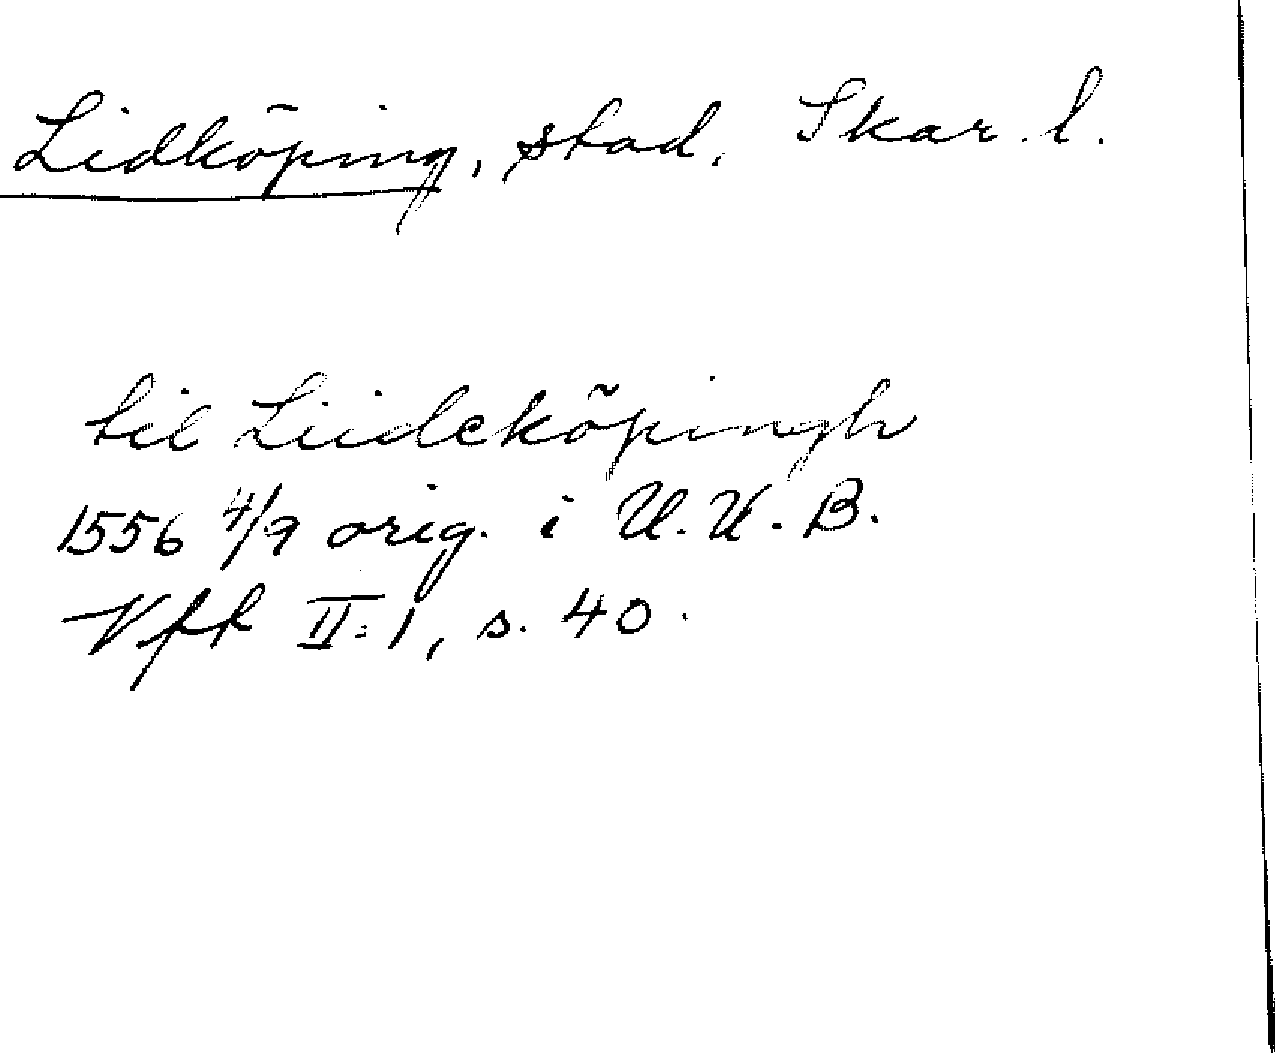 Lidköping, stad, Skar. l.
til Liideköpingh
1556 4/9 orig. i U.U.B.
Vfk II:1, s. 40.